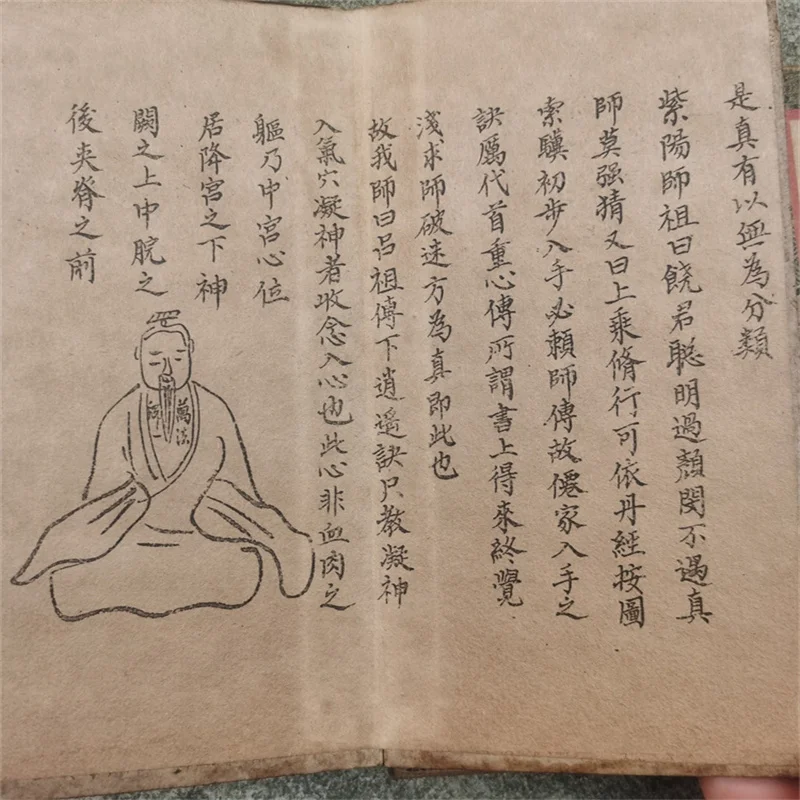 是真有以無為分類
紫陽師祖曰饒君聰明過顏閔不遇真
師莫强猜又曰上乘脩行可依丹經按圖
索驥初步入手必賴師傳故僊家入手之
訣厲代首重心傳所謂書上得來終覺
淺求師破迷方為真即此也
故我師曰呂祖傳下逍遙訣只教凝神
入氣穴凝神者收念入心也此心非血肉之
軀乃中宮心位
居降宮之下神
闕之上中脘之
後夾脊之前
萬法